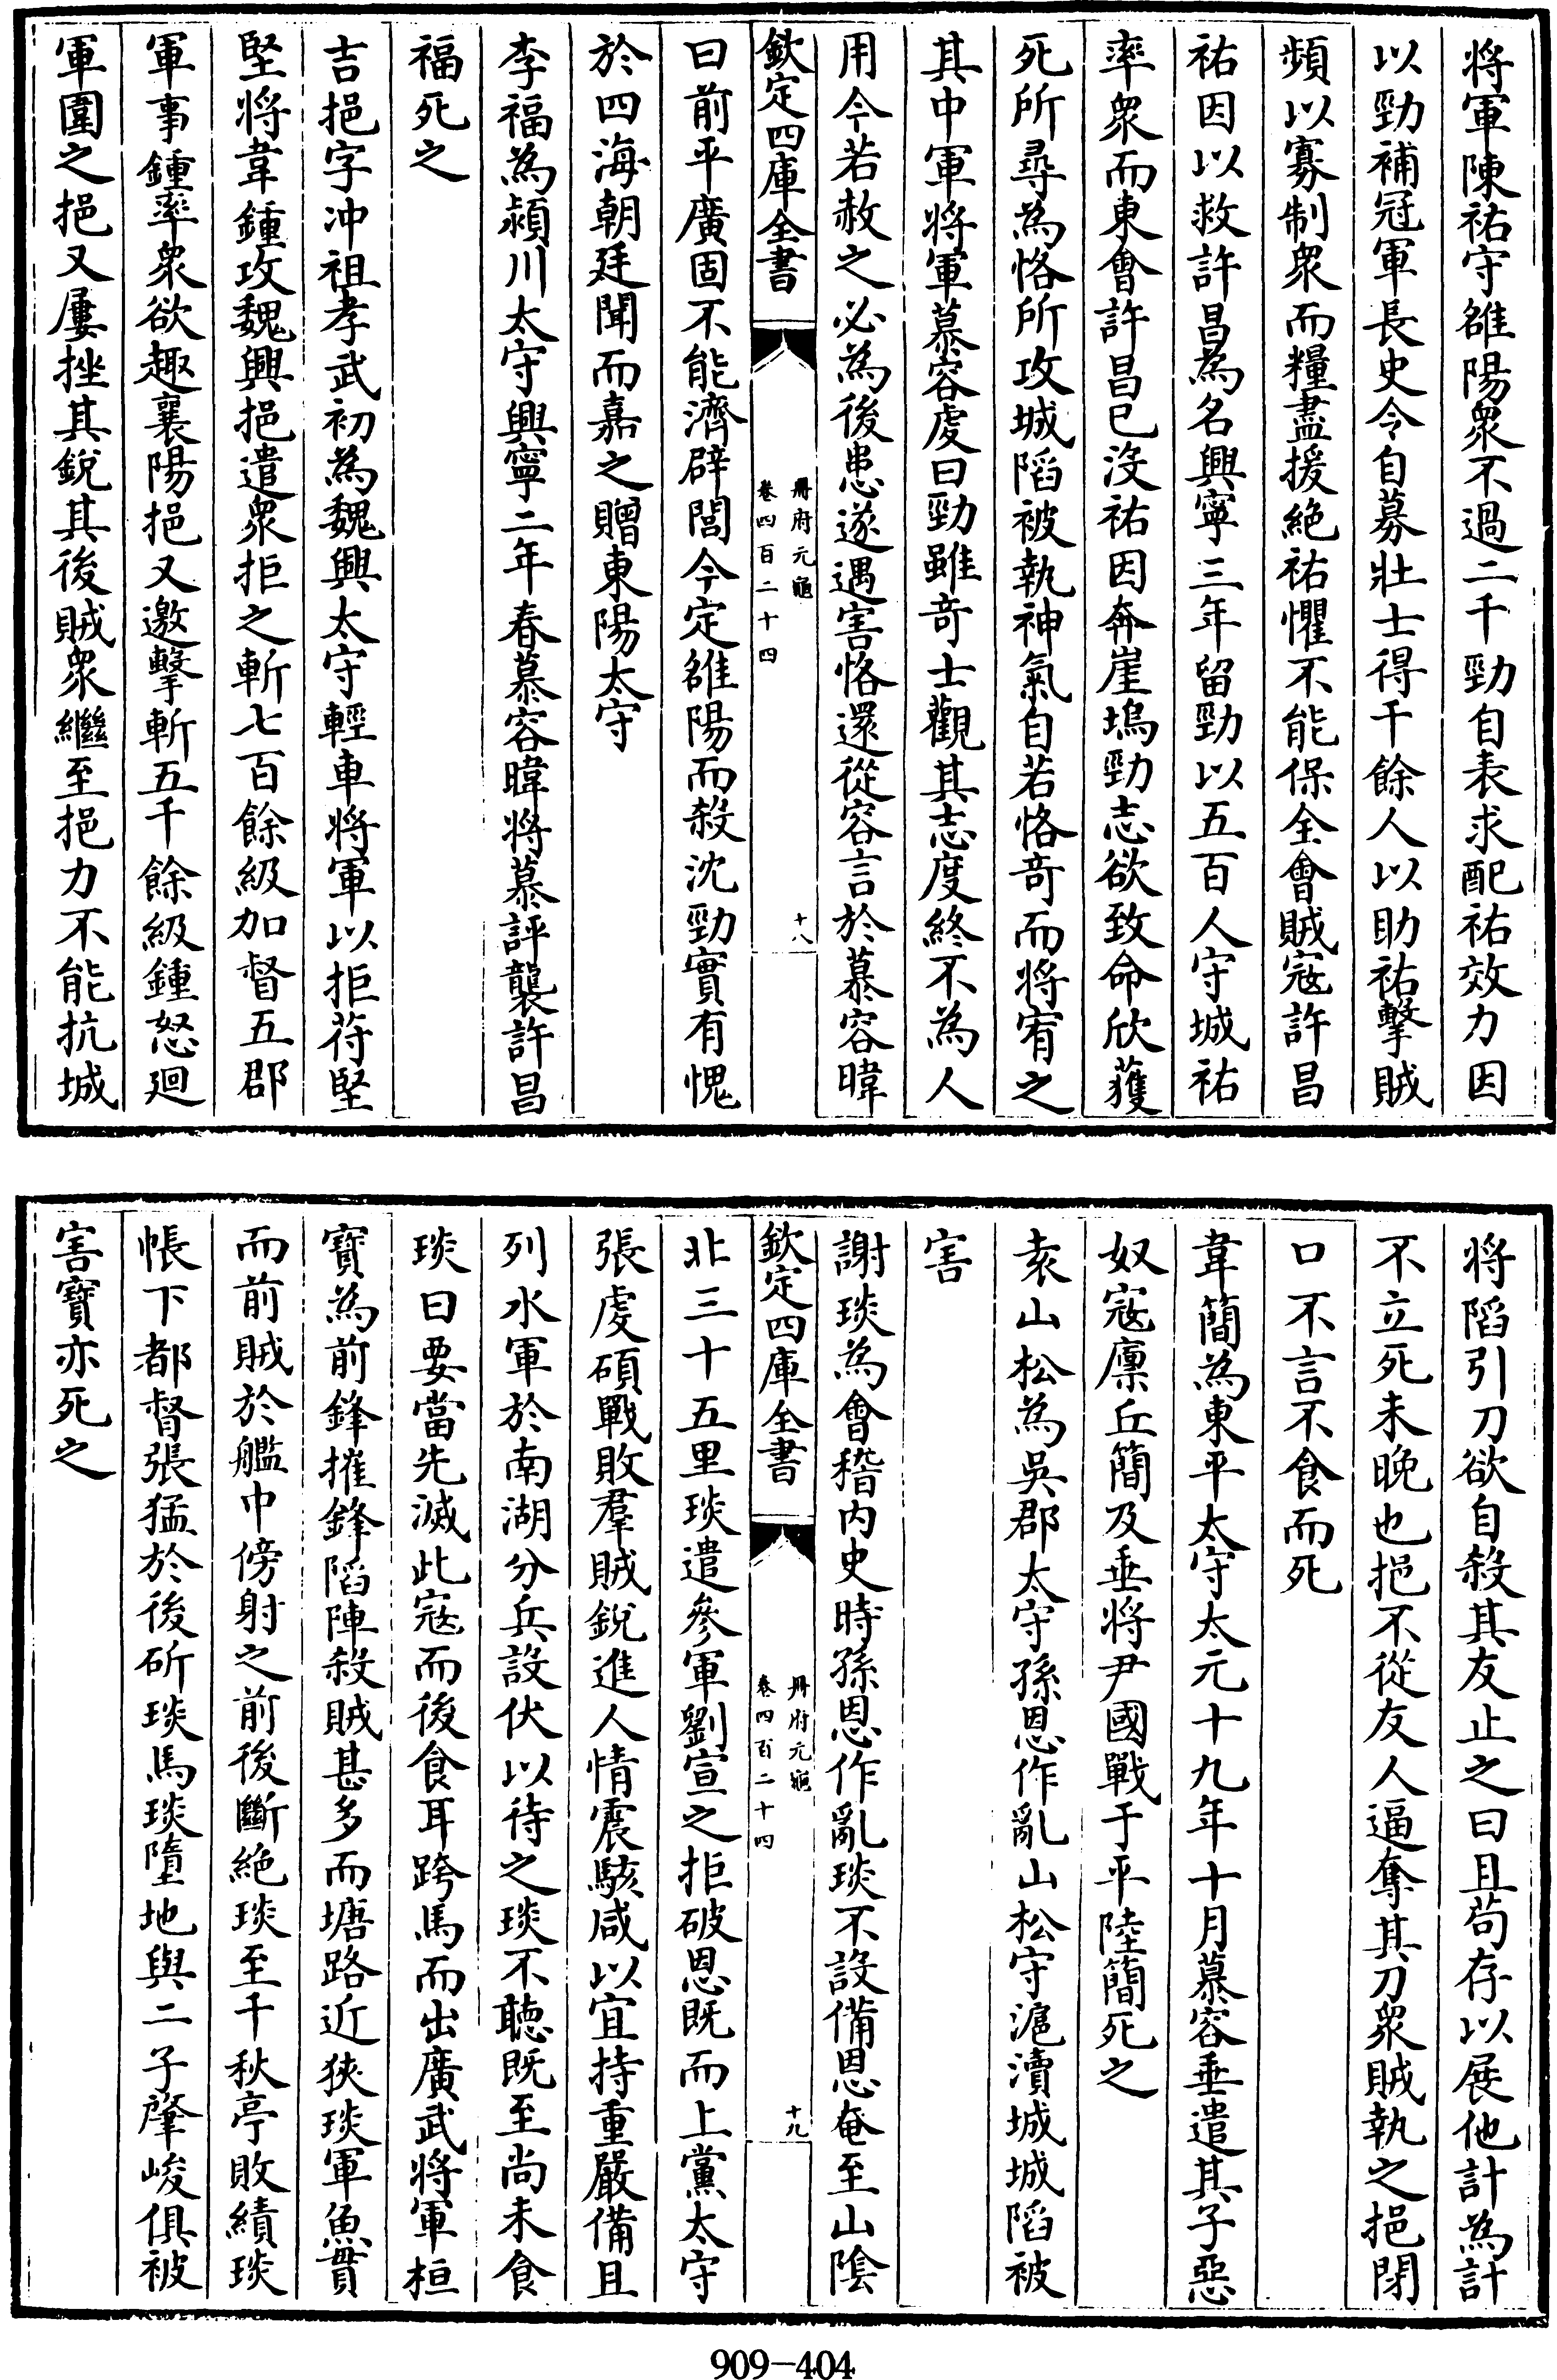 將軍陳祐守雒陽衆不過二千勁自表求配祐效力因
以勁補冠軍長史令自募壯士得千餘人以助祐擊賊
頻以寡制衆而糧盡援絶祐懼不能保全會賊寇許昌
祐因以救許昌為名興寧三年留勁以五百人守城祐
率衆而東會許昌已沒祐因奔崖塢勁志欲致命欣獲
死所尋為恪所攻城陷被執神氣自若恪奇而將宥之
其中軍將軍慕容虔曰勁雖奇士觀其志度終不為人
用今若赦之必為後患遂遇害恪還從容言於慕容暐
欽定四庫全書
冊府元龜
卷四百二十四
十八
曰前平廣固不能濟辟閭今定雒陽而殺沈勁實有愧
於四海朝廷聞而嘉之贈東陽太守
李福為潁川太守興寧二年春慕容暐將慕評襲許昌
福死之
吉挹字冲祖孝武初為魏興太守輕車將軍以拒苻堅
堅將韋鍾攻魏興挹遣衆拒之斬七百餘級加督五郡
軍事鍾率衆欲趣襄陽挹又邀擊斬五千餘級鍾怒廻
軍圍之挹又屢挫其銳其後賊衆繼至挹力不能抗城
將陷引刀欲自殺其友止之曰且苟存以展他計為計
不立死未晚也挹不從友人逼奪其刀衆賊執之挹閉
口不言不食而死
韋簡為東平太守太元十九年十月慕容垂遣其子惡
奴寇廩丘簡及垂將尹國戰于平陸簡死之
袁山松為吳郡太守孫恩作亂山松守滬瀆城城陷被
害
謝琰為會稽內史時孫恩作亂琰不設備恩奄至山陰
欽定四庫全書
冊府元龜
卷四百二十四
十九
北三十五里琰遣參軍劉宣之拒破恩既而上黨太守
張虔碩戰敗羣賊銳進人情震駭咸以宜持重嚴備且
列水軍於南湖分兵設伏以待之琰不聽既至尚未食
琰曰要當先滅此寇而後食耳跨馬而出廣武將軍桓
寶為前鋒摧鋒陷陣殺賊甚多而塘路近狹琰軍魚貫
而前賊於艦中傍射之前後斷絶琰至千秋亭敗績琰
帳下都督張猛於後斫琰馬琰墮地與二子肇峻俱被
害寶亦死之
909-404